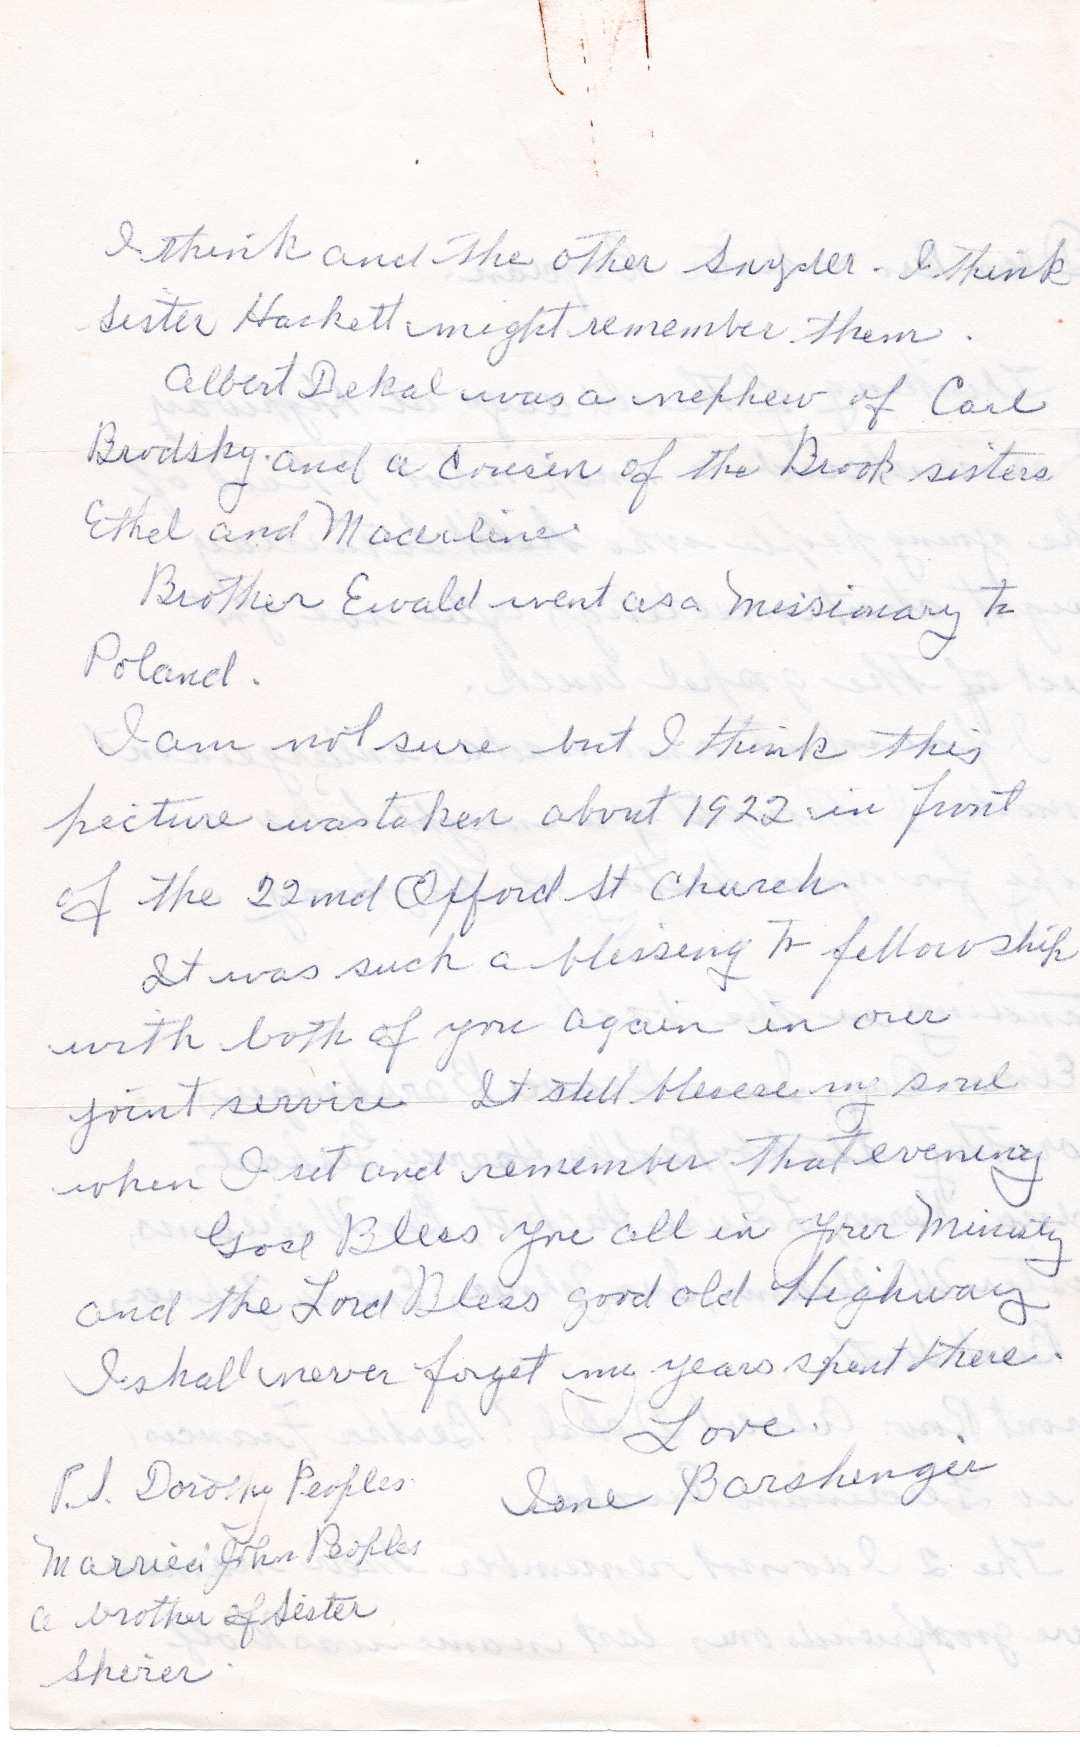 I think and the other Snyder. I think
Sister Hackett might remember them.
Albert Dekal was a nephew of Carl
Brodsky. and a cousin of the Brook sisters
Ethel and Madeline.
Brother Ewald went as a Missionary to
Poland.
I am not sure but I think this
picture was taken about 1922 in front
of the 22nd Offord St Church.
It was such a blessing to fellowship
with both of you again in our
joint service It still blesses my soul
when I sit and remember that evening
God Bless you all in your Ministry
and the Lord Bless good old Highway
I shall never forget my years spent there.
Love.
Irene Barshinger
P.S. Dorothy Peoples
Married John Peoples
a brother of Sister
Shirer.